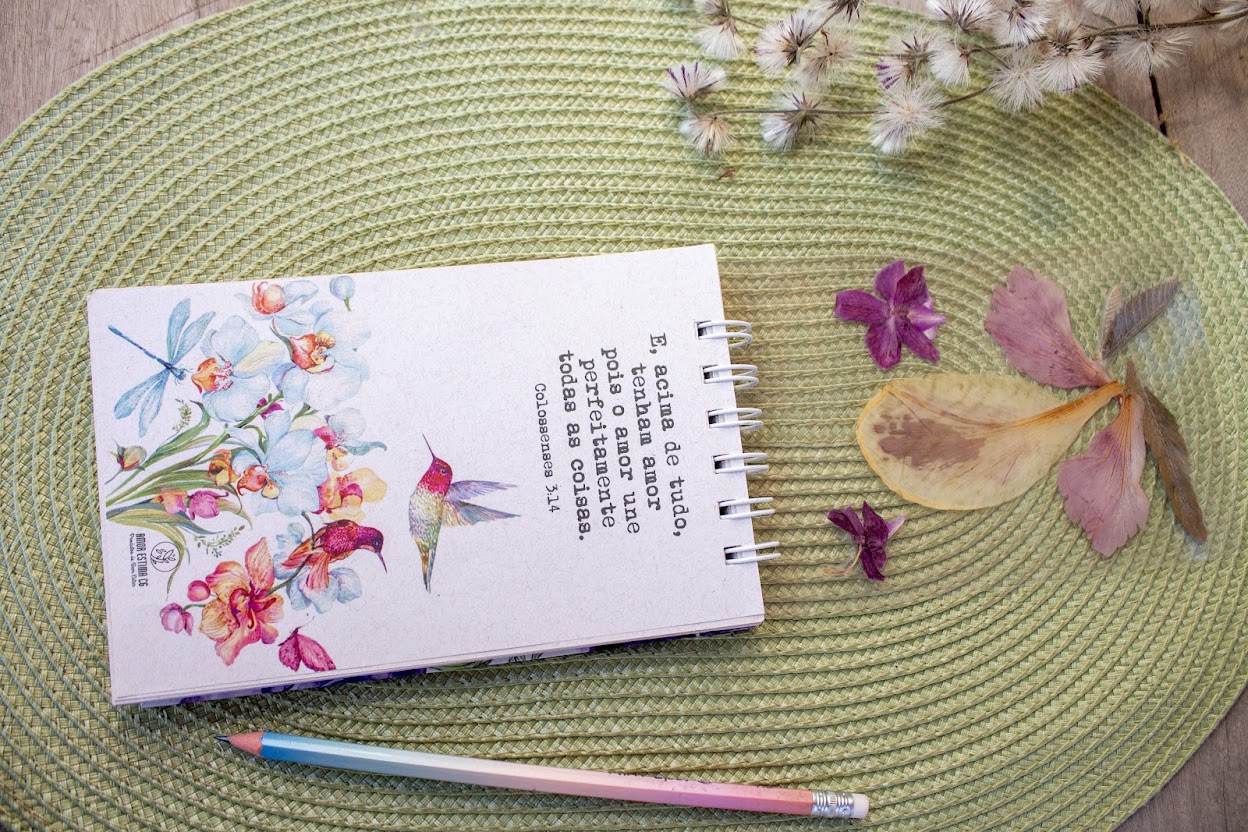 E, acima de tudo,
tenham amor
pois o amor une
perfeitamente
todas as coisas.
Colossenses 3.14
AMOR ESTIMA CG